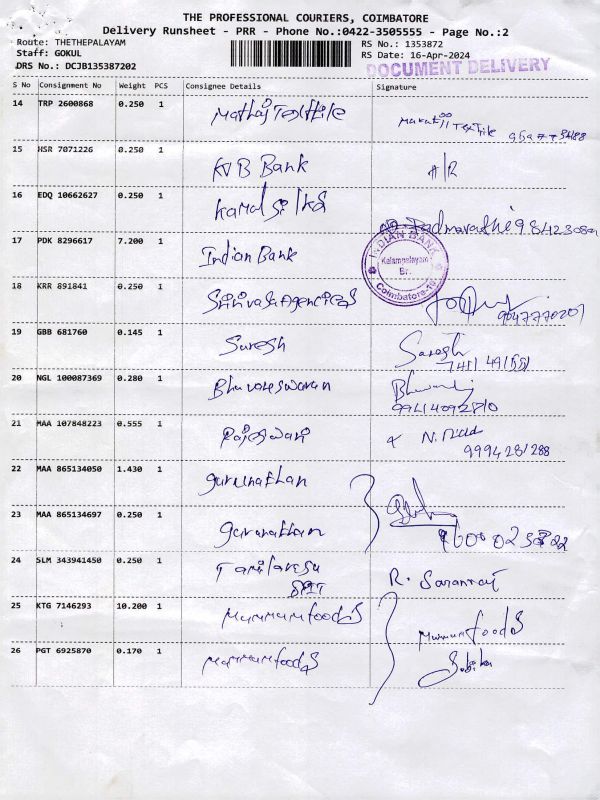 THE PROFESSIONAL COURIERS, COIMBATORE
Delivery Runsheet - PRR - Phone No.:0422-3505555 - Page No.:2
Route: THETHEPALAYAM
Staff: GOKUL
DRS No.: DCJB135387202
RS No.: 1353872
RS Date: 16-Apr-2024
DOCUMENT DELIVERY
S No Consignment No Weight PCS Consignee Details Signature
14 TRP 2600868 0.250 1 Textile
15 HSR 7071226 0.250 1 KVB Bank A/R
16 EDQ 10662627 0.250 1 Kamal silks Padmavathi
17 PDK 8296617 7.200 1 Indian Bank
INDIAN BANK
Kalampalayam
Br.
18 KRR 891841 0.250 1 Srinivasa Agencies
9047770207
19 GBB 681760 0.145 1 Suresh Suresh
20 NGL 100087369 0.280 1 Bhuvaneswaran
21 MAA 107848223 0.555 1 Rajeswari
9994281288
22 MAA 865134050 1.430 1 gurunathan
23 MAA 865134697 0.250 1 gurunathan
24 SLM 343941450 0.250 1 R.
25 KTG 7146293 10.200 1 foods foods
26 PGT 6925870 0.170 1 foods